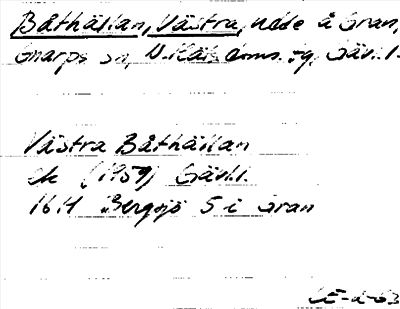 Båthällan, Västra, udde å Gran,
Gnarps sn, N. Häls. doms. tg, Gävl. l.
Västra Båthällan
ek (1959) Gävl. l.
16H Bergsjö 5 i Gran